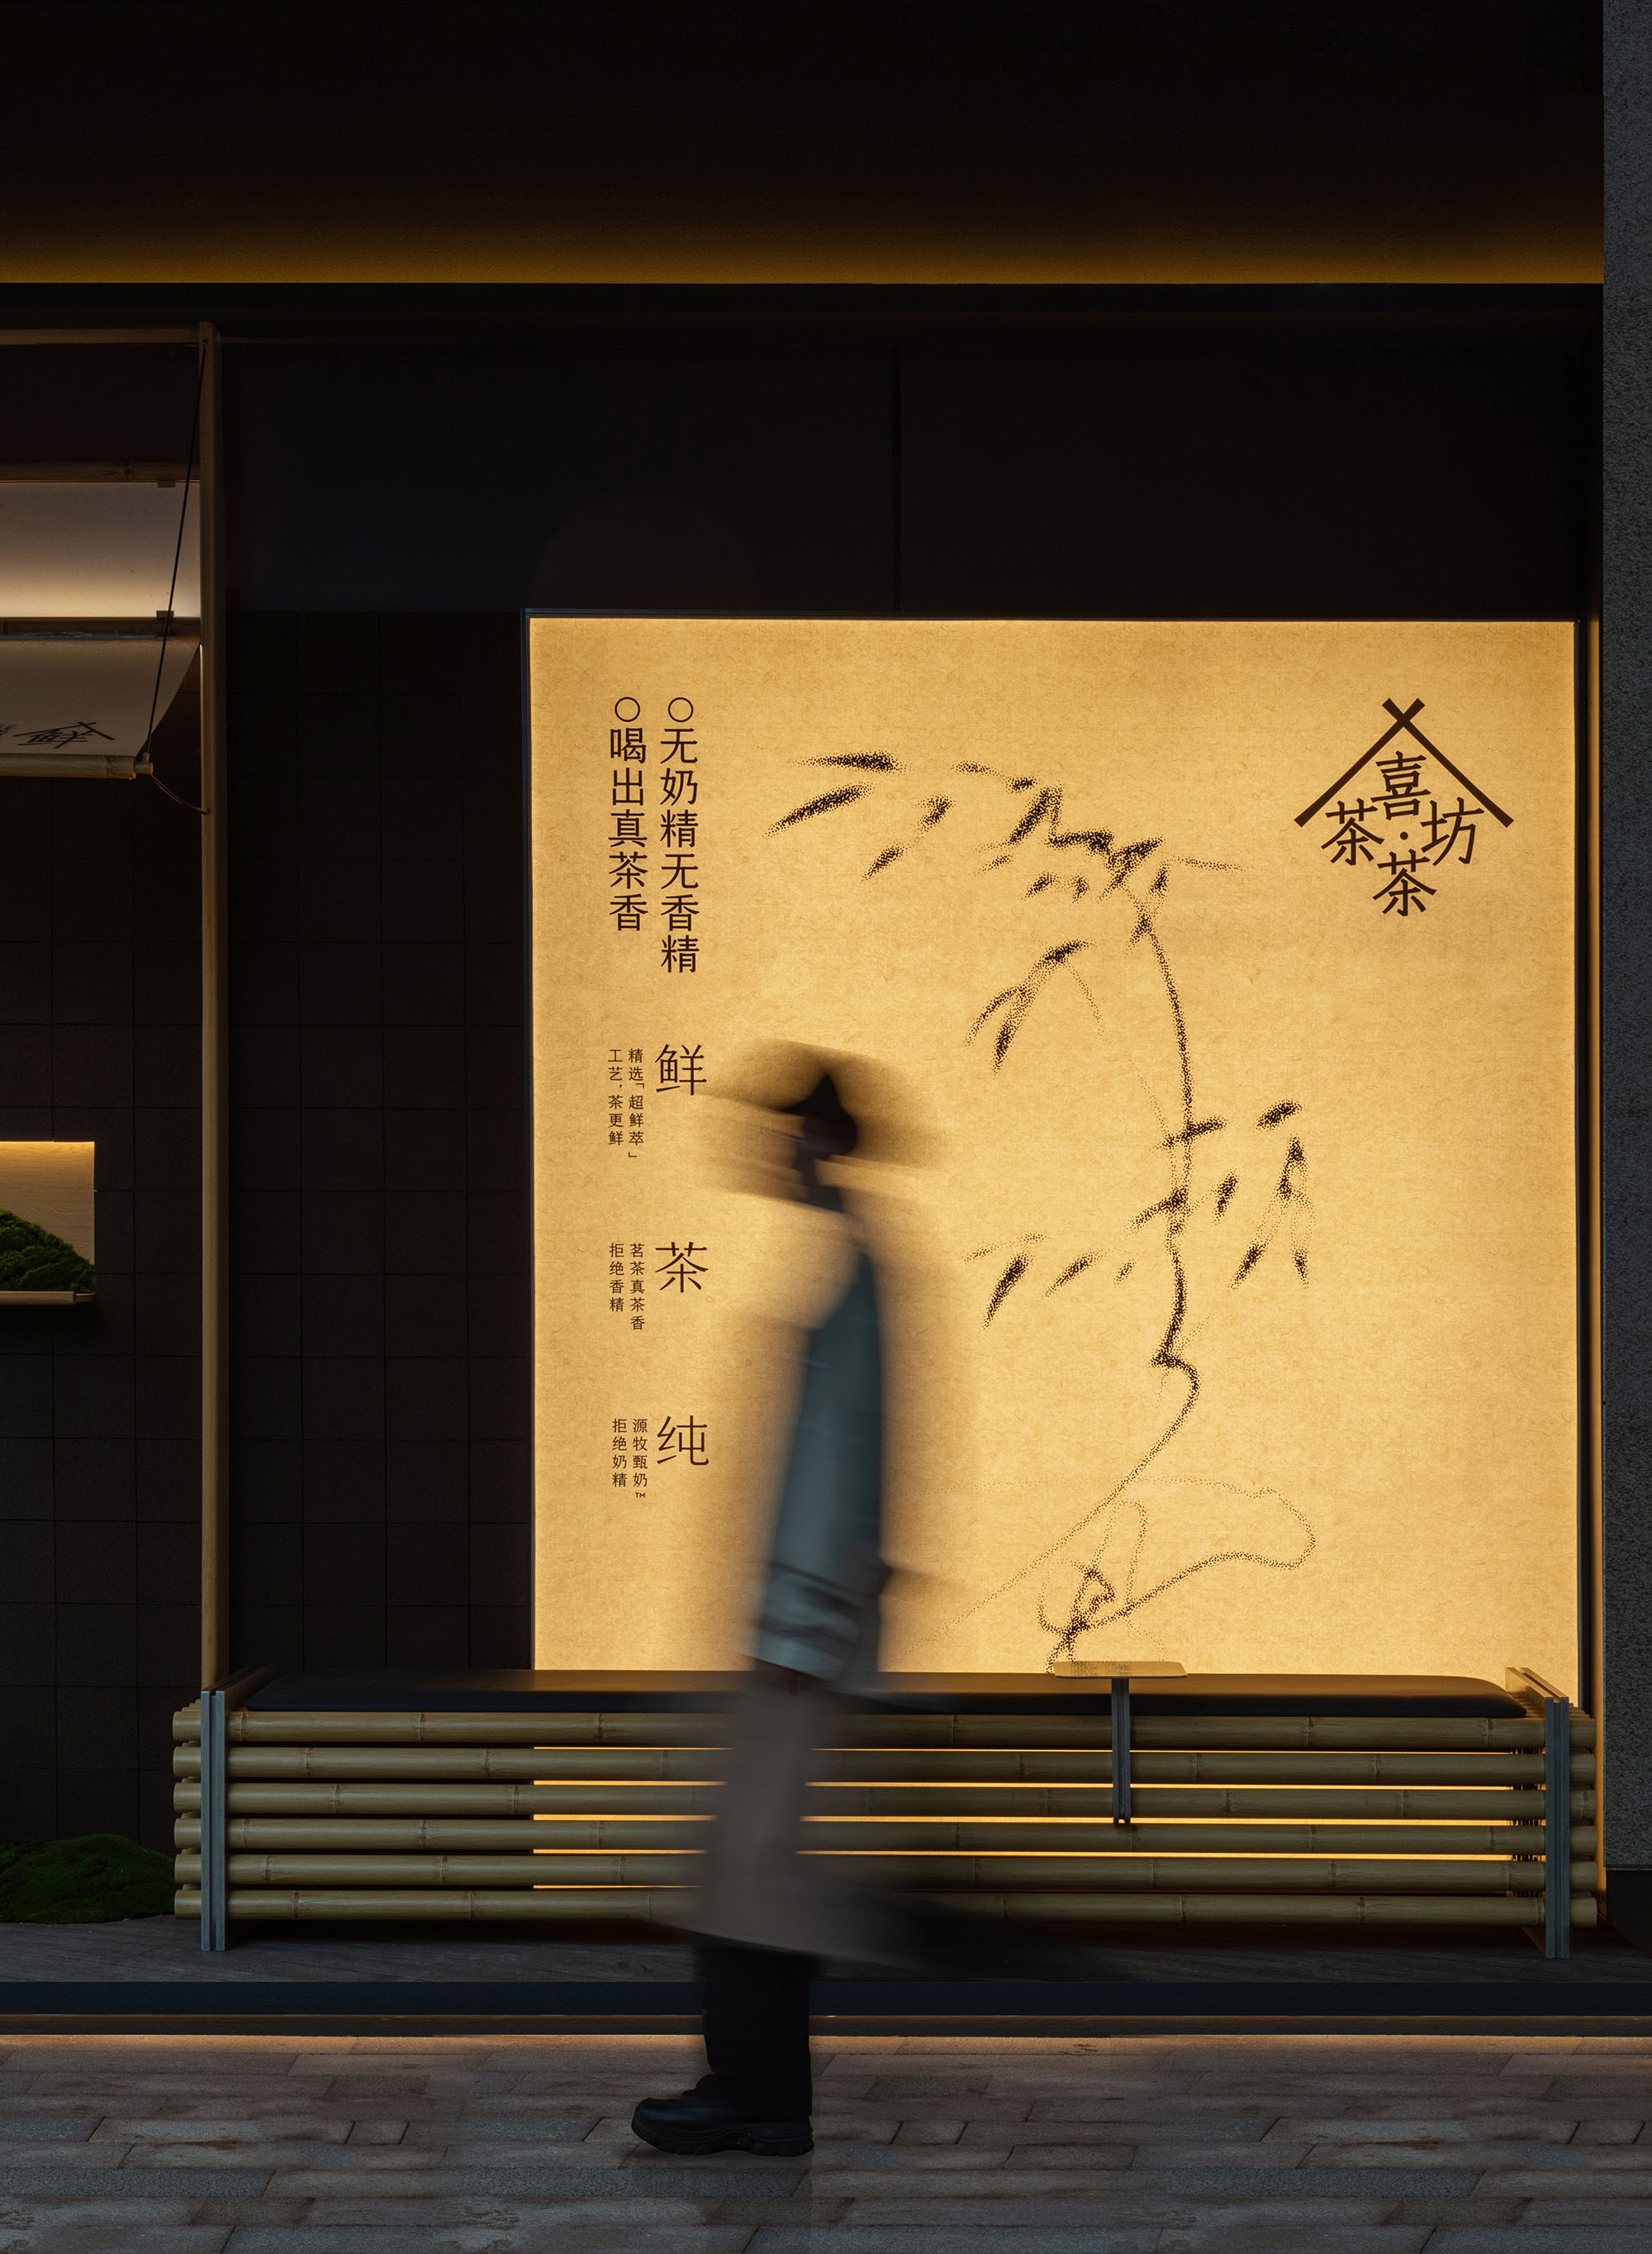 喜茶·茶坊
○无奶精无香精
○喝出真茶香
鲜
精选「超鲜萃」
工艺，茶更鲜
茶
茗茶真茶香
拒绝香精
纯
源牧甄奶™
拒绝奶精